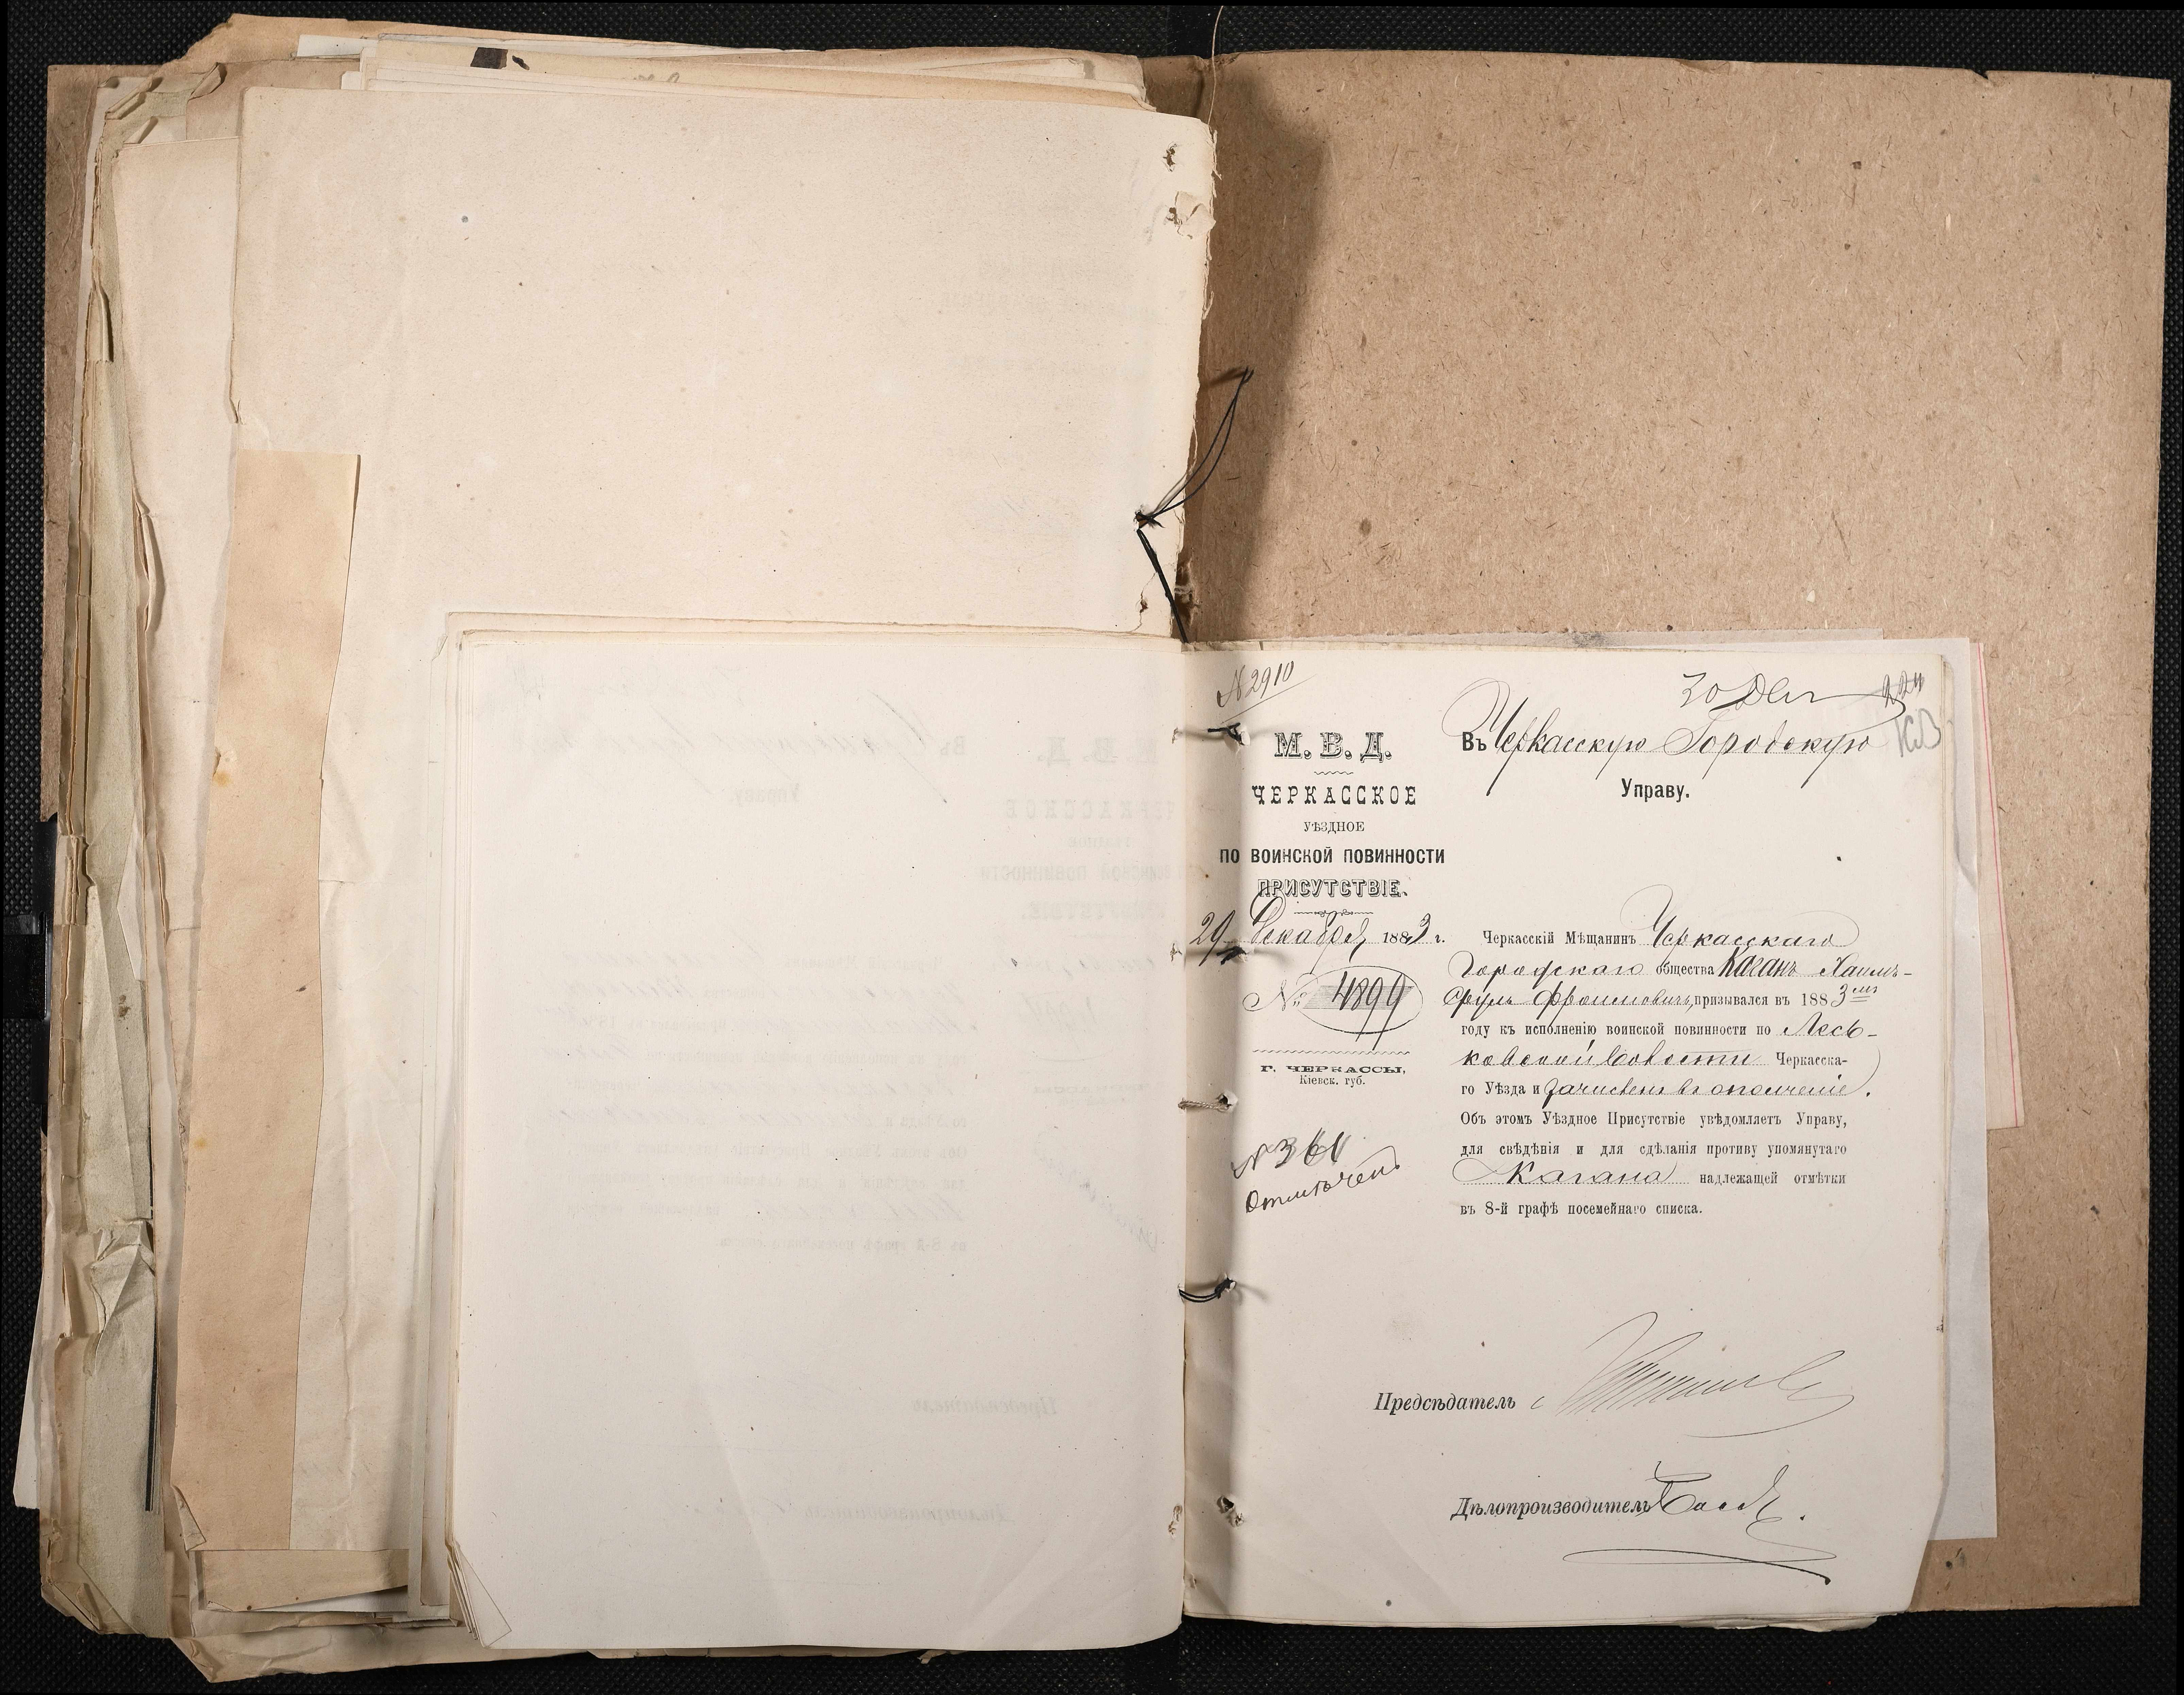 N 2910
30 Дек
224
М. В. Д.
ЧЕРКАССКОЕ
УѢЗДНОЕ
ПО ВОИНСКОЙ ПОВИННОСТИ
ПРИСУТСТВІЕ.
29 Декабря 1883 г.
№ 4899
Г. ЧЕРКАССЫ,
Кіевск. губ.
N 361
Отмѣченъ
Въ Черкасскую Городскую
Управу.
Черкасскій Мѣщанинъ Черкасскаго
Городскаго общества Каганъ Хаимъ-
Сруль Фроимовичъ, призывался въ 1883мъ
году къ исполненію воинской повинности по Лесь-
ковской Волости Черкасска-
го Уѣзда и зачисленъ въ ополченіе.
Объ этомъ Уѣздное Присутствіе увѣдомляетъ Управу,
для свѣдѣнія и для сдѣланія противу упомянутаго
Кагана надлежащей отмѣтки
въ 8-й графѣ посемейнаго списка.
Предсѣдатель
Дѣлопроизводитель